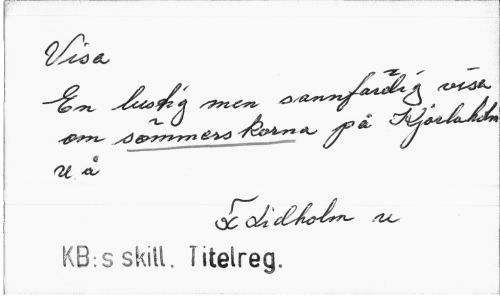 Visa
En lustig men sannfärdig visa
om sömmerskorna på Kjörlaholm
u å
Lidholm u
KB:s skill. Titelreg.